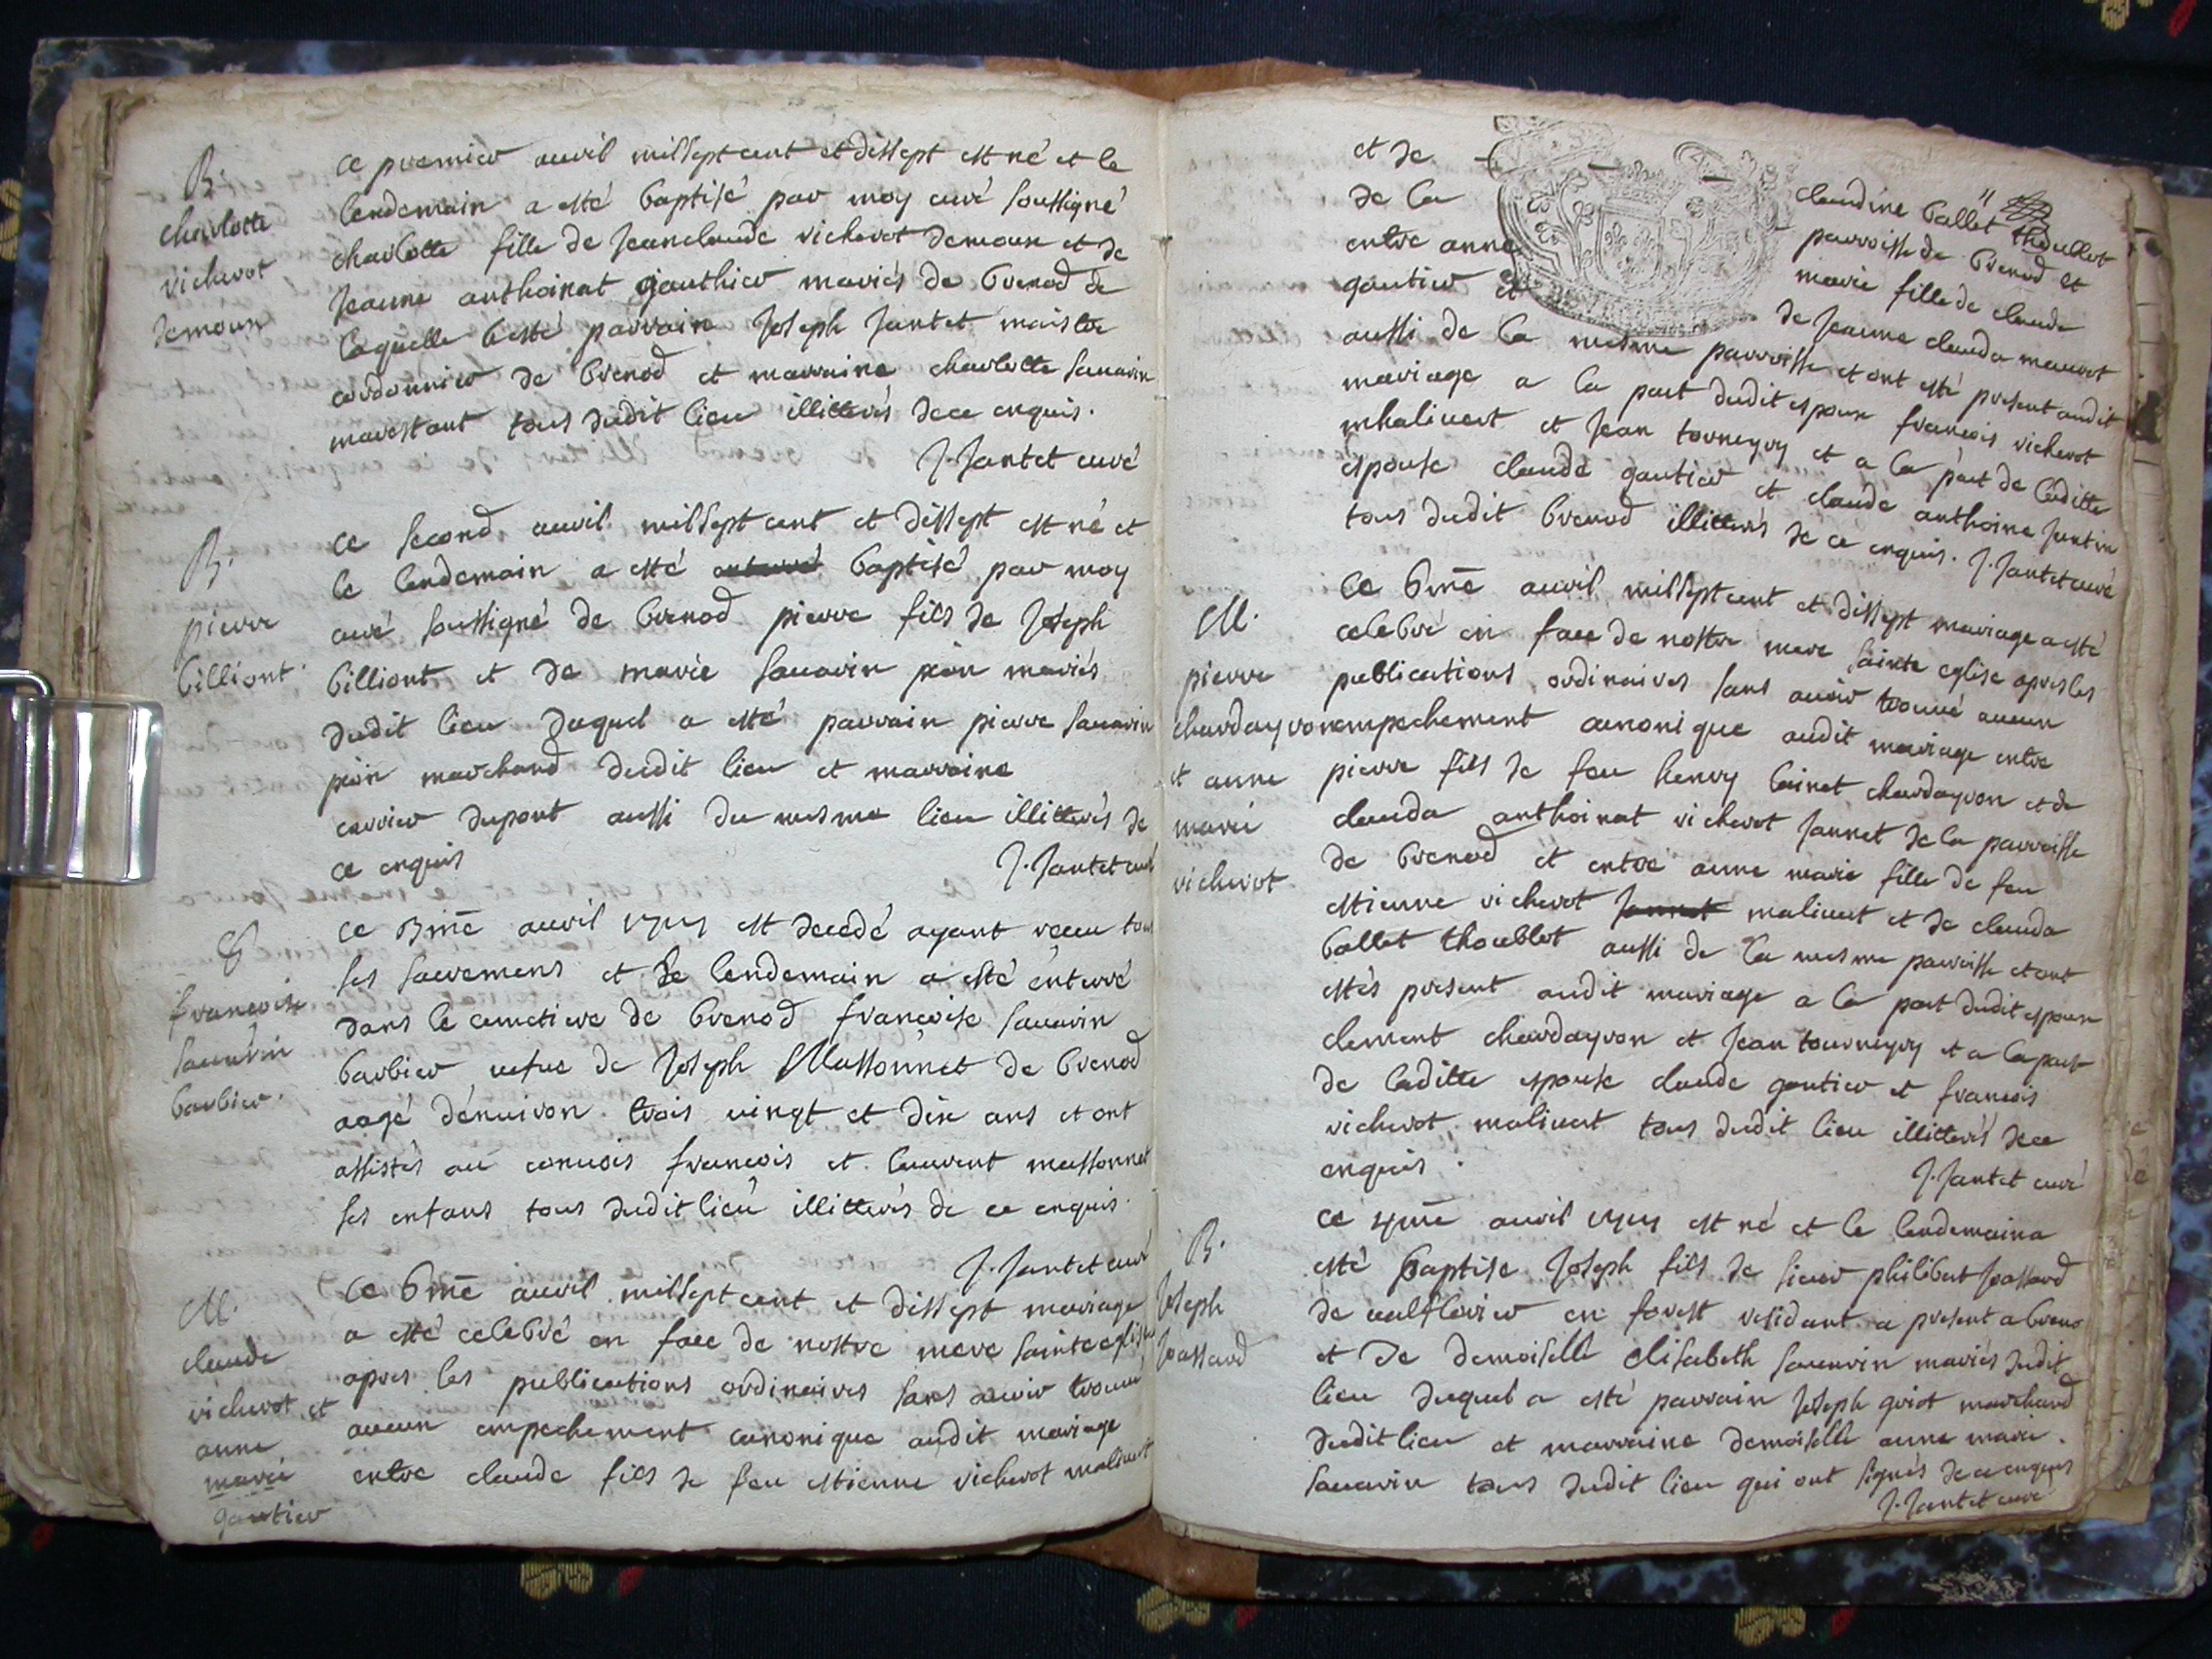 B.
charlotte
vicherot
demoux
ce premier avril mil sept cent et dissept est né et le
lendemain a esté baptisé par moy curé soussigné
charlotte fille de Jeanclaude vicherot demoux et de
Jeanne anthoinat gauthier mariés de brenod de
laquelle a esté parrain Joseph Jantet maistre
cordonnier de brenod et marraine charlotte sauarin
tous dudit lieu illitterés de ce enquis.
J. Jantet curé
B.
pierre
billiont.
ce second avril mil sept cent et dissept est né et
le lendemain a esté enterré baptisé par moy
curé soussigné de brenod pierre fils de Joseph
billiont et de marie sauarin mariés
dudit lieu duquel a esté parrain pierre sauarin
marchand dudit lieu et marraine
dupont aussi du mesme lieu illitterés de
ce enquis
J. Jantet curé
françoise
sauarin
barbier.
ce 5me avril 1717 est decedé ayant receu tous
ses sacremens et le lendemain a esté enterré
dans le cimetiere de brenod françoise sauarin
barbier vefue de Joseph Massonnet de brenod
aagé d'enuiron trois vingt et dix ans et ont
assistés au conuois francois et laurent massonnet
ses enfans tous dudit lieu illitterés de ce enquis.
J. Jantet curé
M.
claude
vicherot et
anne
marie
gautier
ce 6me avril mil sept cent et dissept mariage
a esté celebré en face de nostre mere sainte eglise
apres les publications ordinaires sans auoir trouué
aucun empechement canonique audit mariage
entre claude fils de feu estienne vicherot maliuert
et de claudine ballet thoublot
de la parroisse de brenod et
entre anne marie fille de claude
gautier et de Jeanne clauda maurot
aussi de la mesme parroisse et ont esté present audit
mariage a la part dudit espoux francois vicherot
maliuert et Jean torneyry et a la part de laditte
espouse claude gautier et claude anthoine Jantin
tous dudit brenod illitterés de ce enquis. J. Jantet curé
M.
pierre
chardayron
et anne
marie
vicherot
ce 6me avril mil sept cent et dissept mariage a esté
celebré en face de nostre mere sainte eglise apres les
publications ordinaires sans auoir trouué aucun
empechement canonique audit mariage entre
pierre fils de feu henry chardayron et de
clauda anthoinat vicherot Jannet de la parroisse
de brenod et entre anne marie fille de feu
estienne vicherot Jannet maliuert et de clauda
ballet thoublot aussi de la mesme parroisse et ont
estés present audit mariage a la part dudit espoux
clement chardayron et Jean tourneyry et a la part
de laditte espouse claude gautier et francois
vicherot maliuert tous dudit lieu illitterés de ce
enquis.
J. Jantet curé
B.
Joseph
Joassard
ce 4me avril 1717 est né et le lendemain a
esté baptise Joseph fils de sieur philibert Joassard
de en forest residant a present a breno
et De demoiselle elisabeth sauarin mariés dudit
lieu duquel a esté parrain Joseph guiot marchand
dudit lieu et marraine demoiselle anne marie
sauarin tous dudit lieu qui ont signés de ce enquis
J. Jantet curé